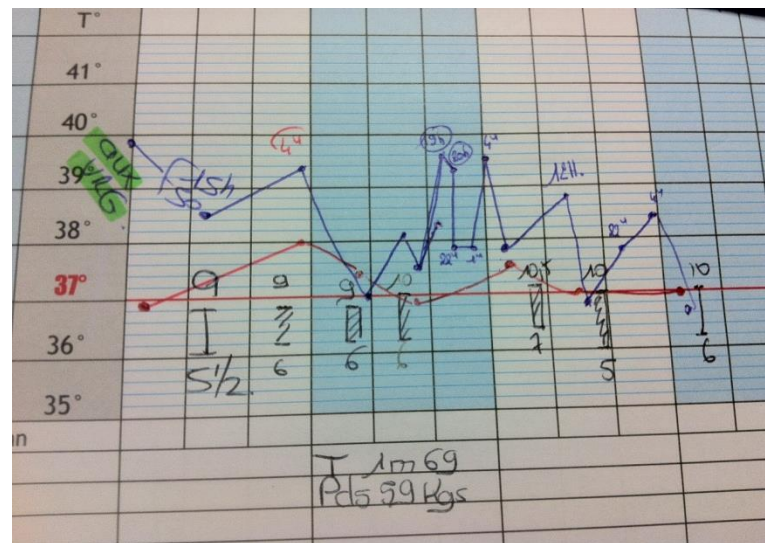 T°
41°
40°
39°
38°
37°
36°
35°
aux
15h
4H
19h
20h
22H
4H
12H.
4H
9
5 1/2
9
6
9
6
10
6
10,5
7
10
5
10
6
T 1m69
Pds 59 Kgs